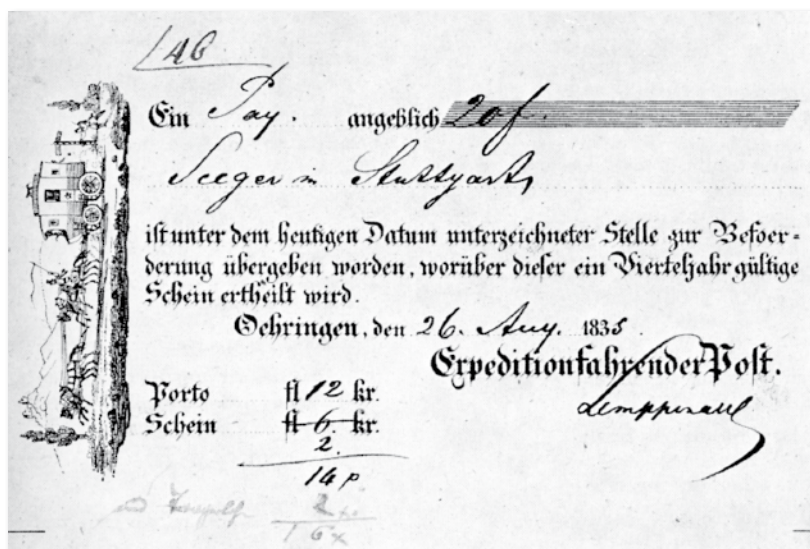 146
Ein Pay. angeblich 20 f.
Seeger in Stuttgart,
ist unter dem heutigen Datum unterzeichneter Stelle zur Befoer-
derung übergeben worden, worüber dieser ein Vierteljahr gültige
Schein ertheilt wird.
Oehringen, den 26. Aug. 1838.
Expedition fahrender Post.
Porto fl 12 kr.
Schein fl 6 kr.
2.
14
2 x.
16 x